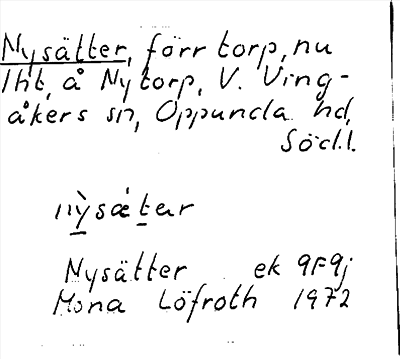 Nysätter, förr torp, nu
lht, å Nytorp, V. Ving-
åkers sn, Oppunda hd,
Södl.
nỳsǽtar
Nysätter ek 9F9j
Mona Löfroth 1972